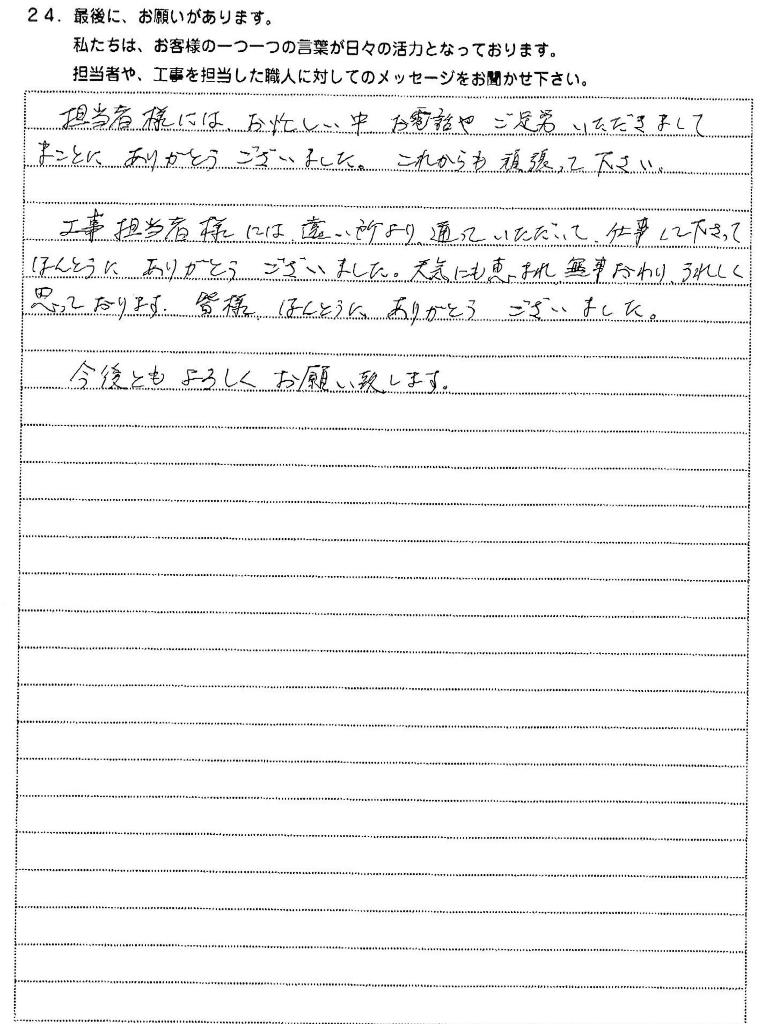 24. 最後に、お願いがあります。
私たちは、お客様の一つ一つの言葉が日々の活力となっております。
担当者や、工事を担当した職人に対してのメッセージをお聞かせ下さい。
担当者様には、お忙しい中 お電話や ご足労 いただきまして
まことに ありがとう ございました。 これからも 頑張って 下さい。
工事担当者様には、遠い所より、通っていただいて、仕事して下さって
ほんとうに ありがとう ございました。天気にも恵まれ、無事おわり、うれしく
思っております。 皆様、ほんとうに ありがとう ございました。
今後とも よろしく お願い致します。